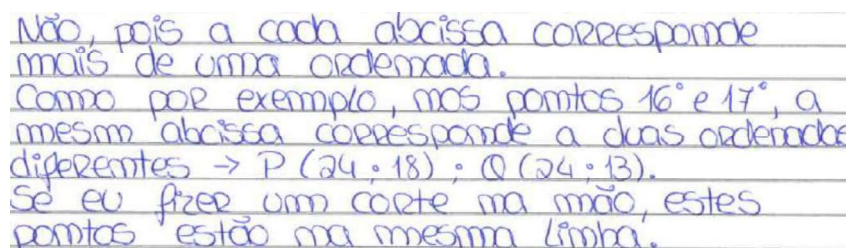 Não, pois a cada abcissa corresponde
mais de uma ordenada.
Como por exemplo, nos pontos 16° e 17°, a
mesm abcissa corresponde a duas ordenadas
diferentes → P (24 ; 18) ; Q (24 ; 13).
Se eu fizer um corte na mão, estes
pontos estão na mesma linha.